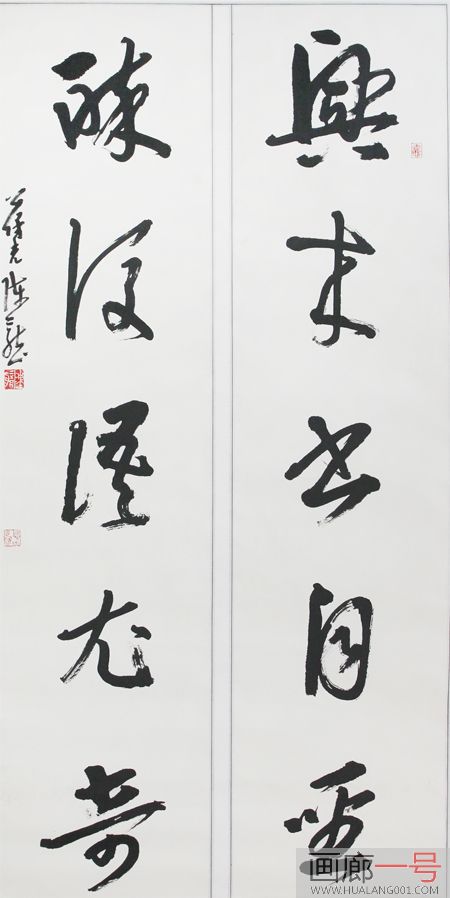 興來書自聖
醉後語尤奇
画廊一号
WWW.HUALANG001.COM